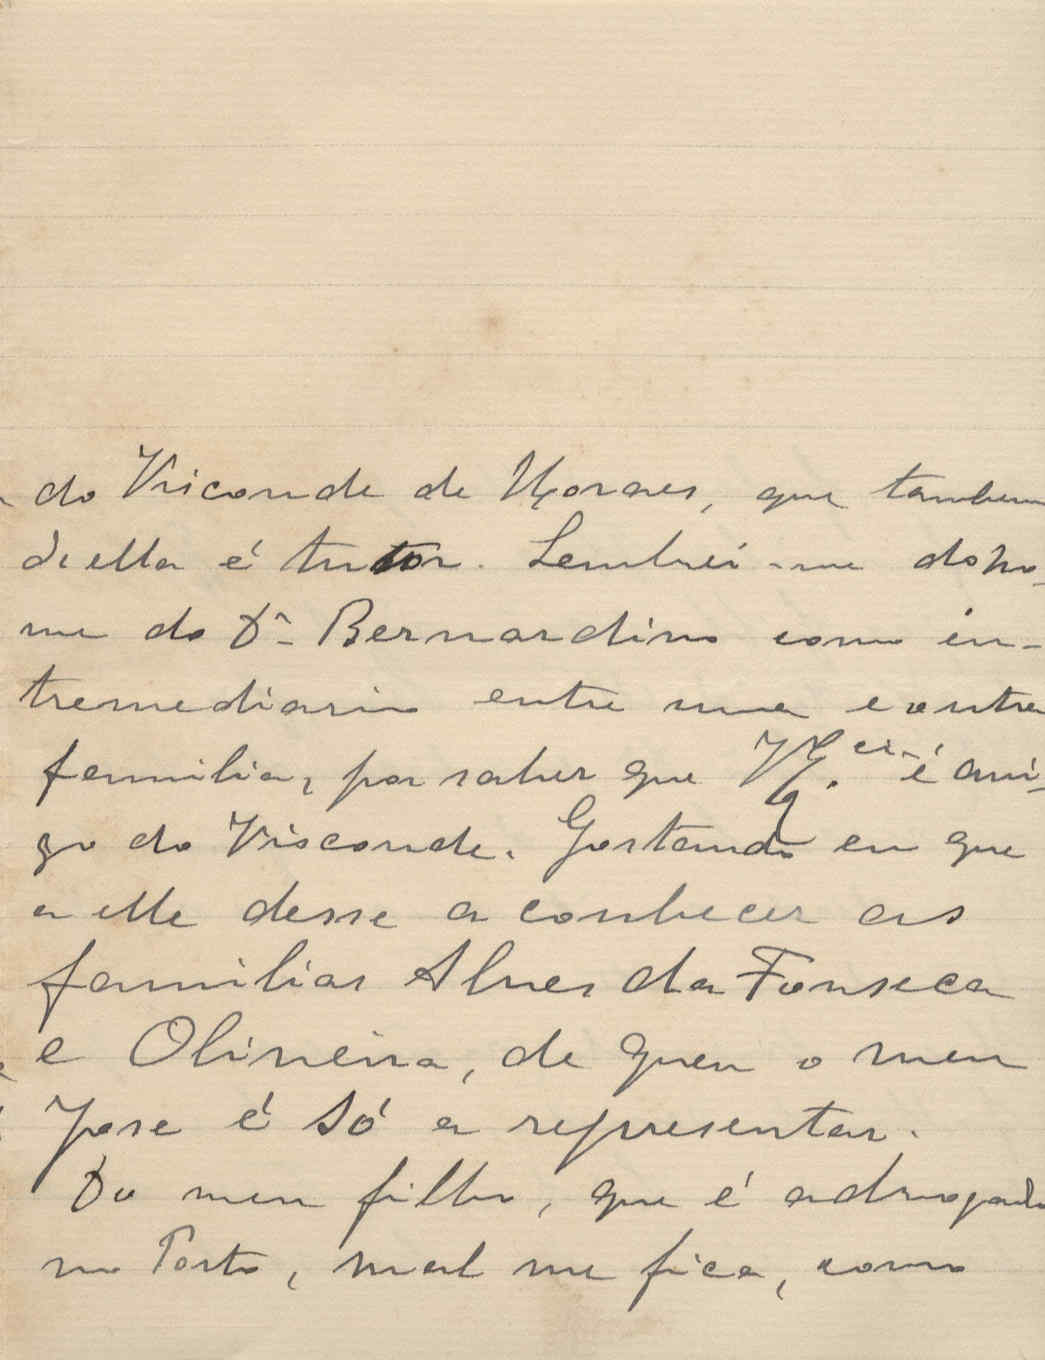 do Visconde de Moraes, que tambem
d'ella é tutor. Lembrei-me do no-
me do Dr. Bernardino como in-
tremediario entre uma e outra
familia, por saber que V. Ex.cia é ami-
go do Visconde. Gostando eu que
a elle desse a conhecer as
familias Alves da Fonseca
e Oliveira, de quem o meu
José é só a representar.
Do meu filho, que é advogado
no Porto, mal me fica, como